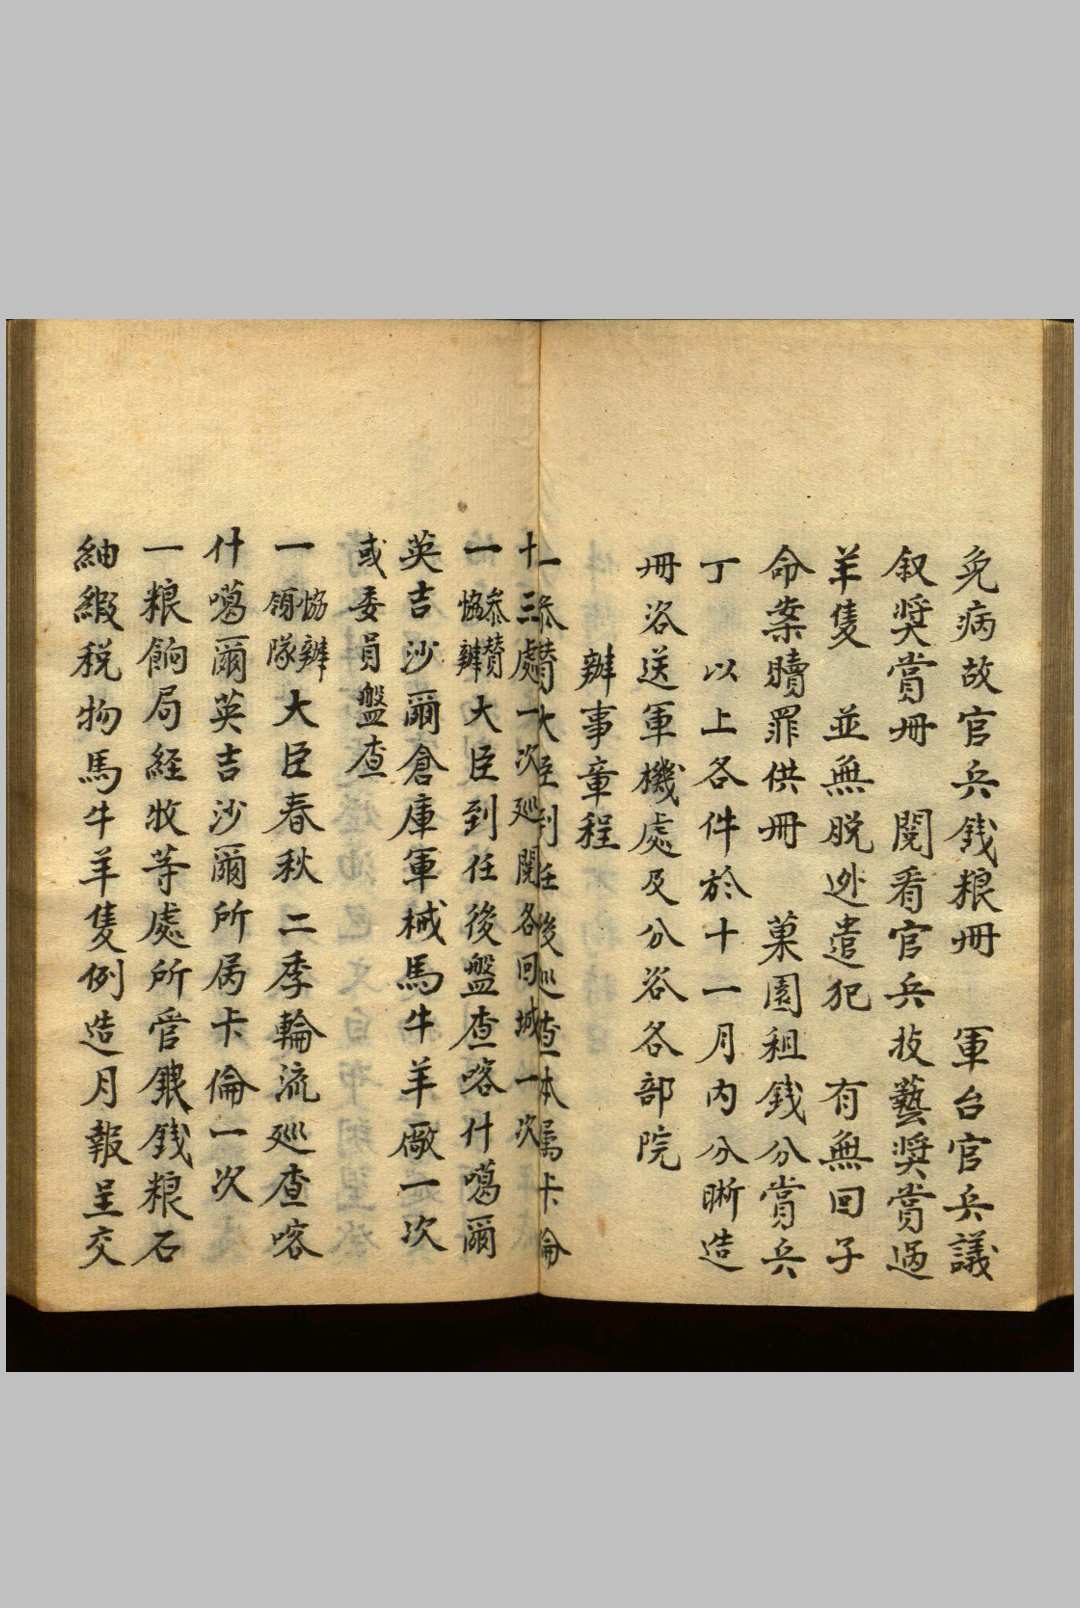 免病故官兵錢粮冊 軍台官兵議
叙奬賞冊 閱看官兵技藝奬賞過
羊隻 並無脱逃遣犯 有無回子
命案贖罪供冊 菓園租錢分賞兵
丁 以上各件於十一月内分晰造
冊咨送軍機處及分咨各部院
辦事章程
一叅賛大臣到任後巡查本属卡倫
十三處一次廵閱各回城一次
一叅賛協辦大臣到任後盤查喀什噶爾
英吉沙爾倉庫軍械馬牛羊廠一次
或委員盤查
一協辦領隊大臣春秋二季輪流廵查喀
什噶爾英吉沙爾所属卡倫一次
一粮餉局経牧等處所管銀錢粮石
紬緞税物馬牛羊隻例造月報呈交